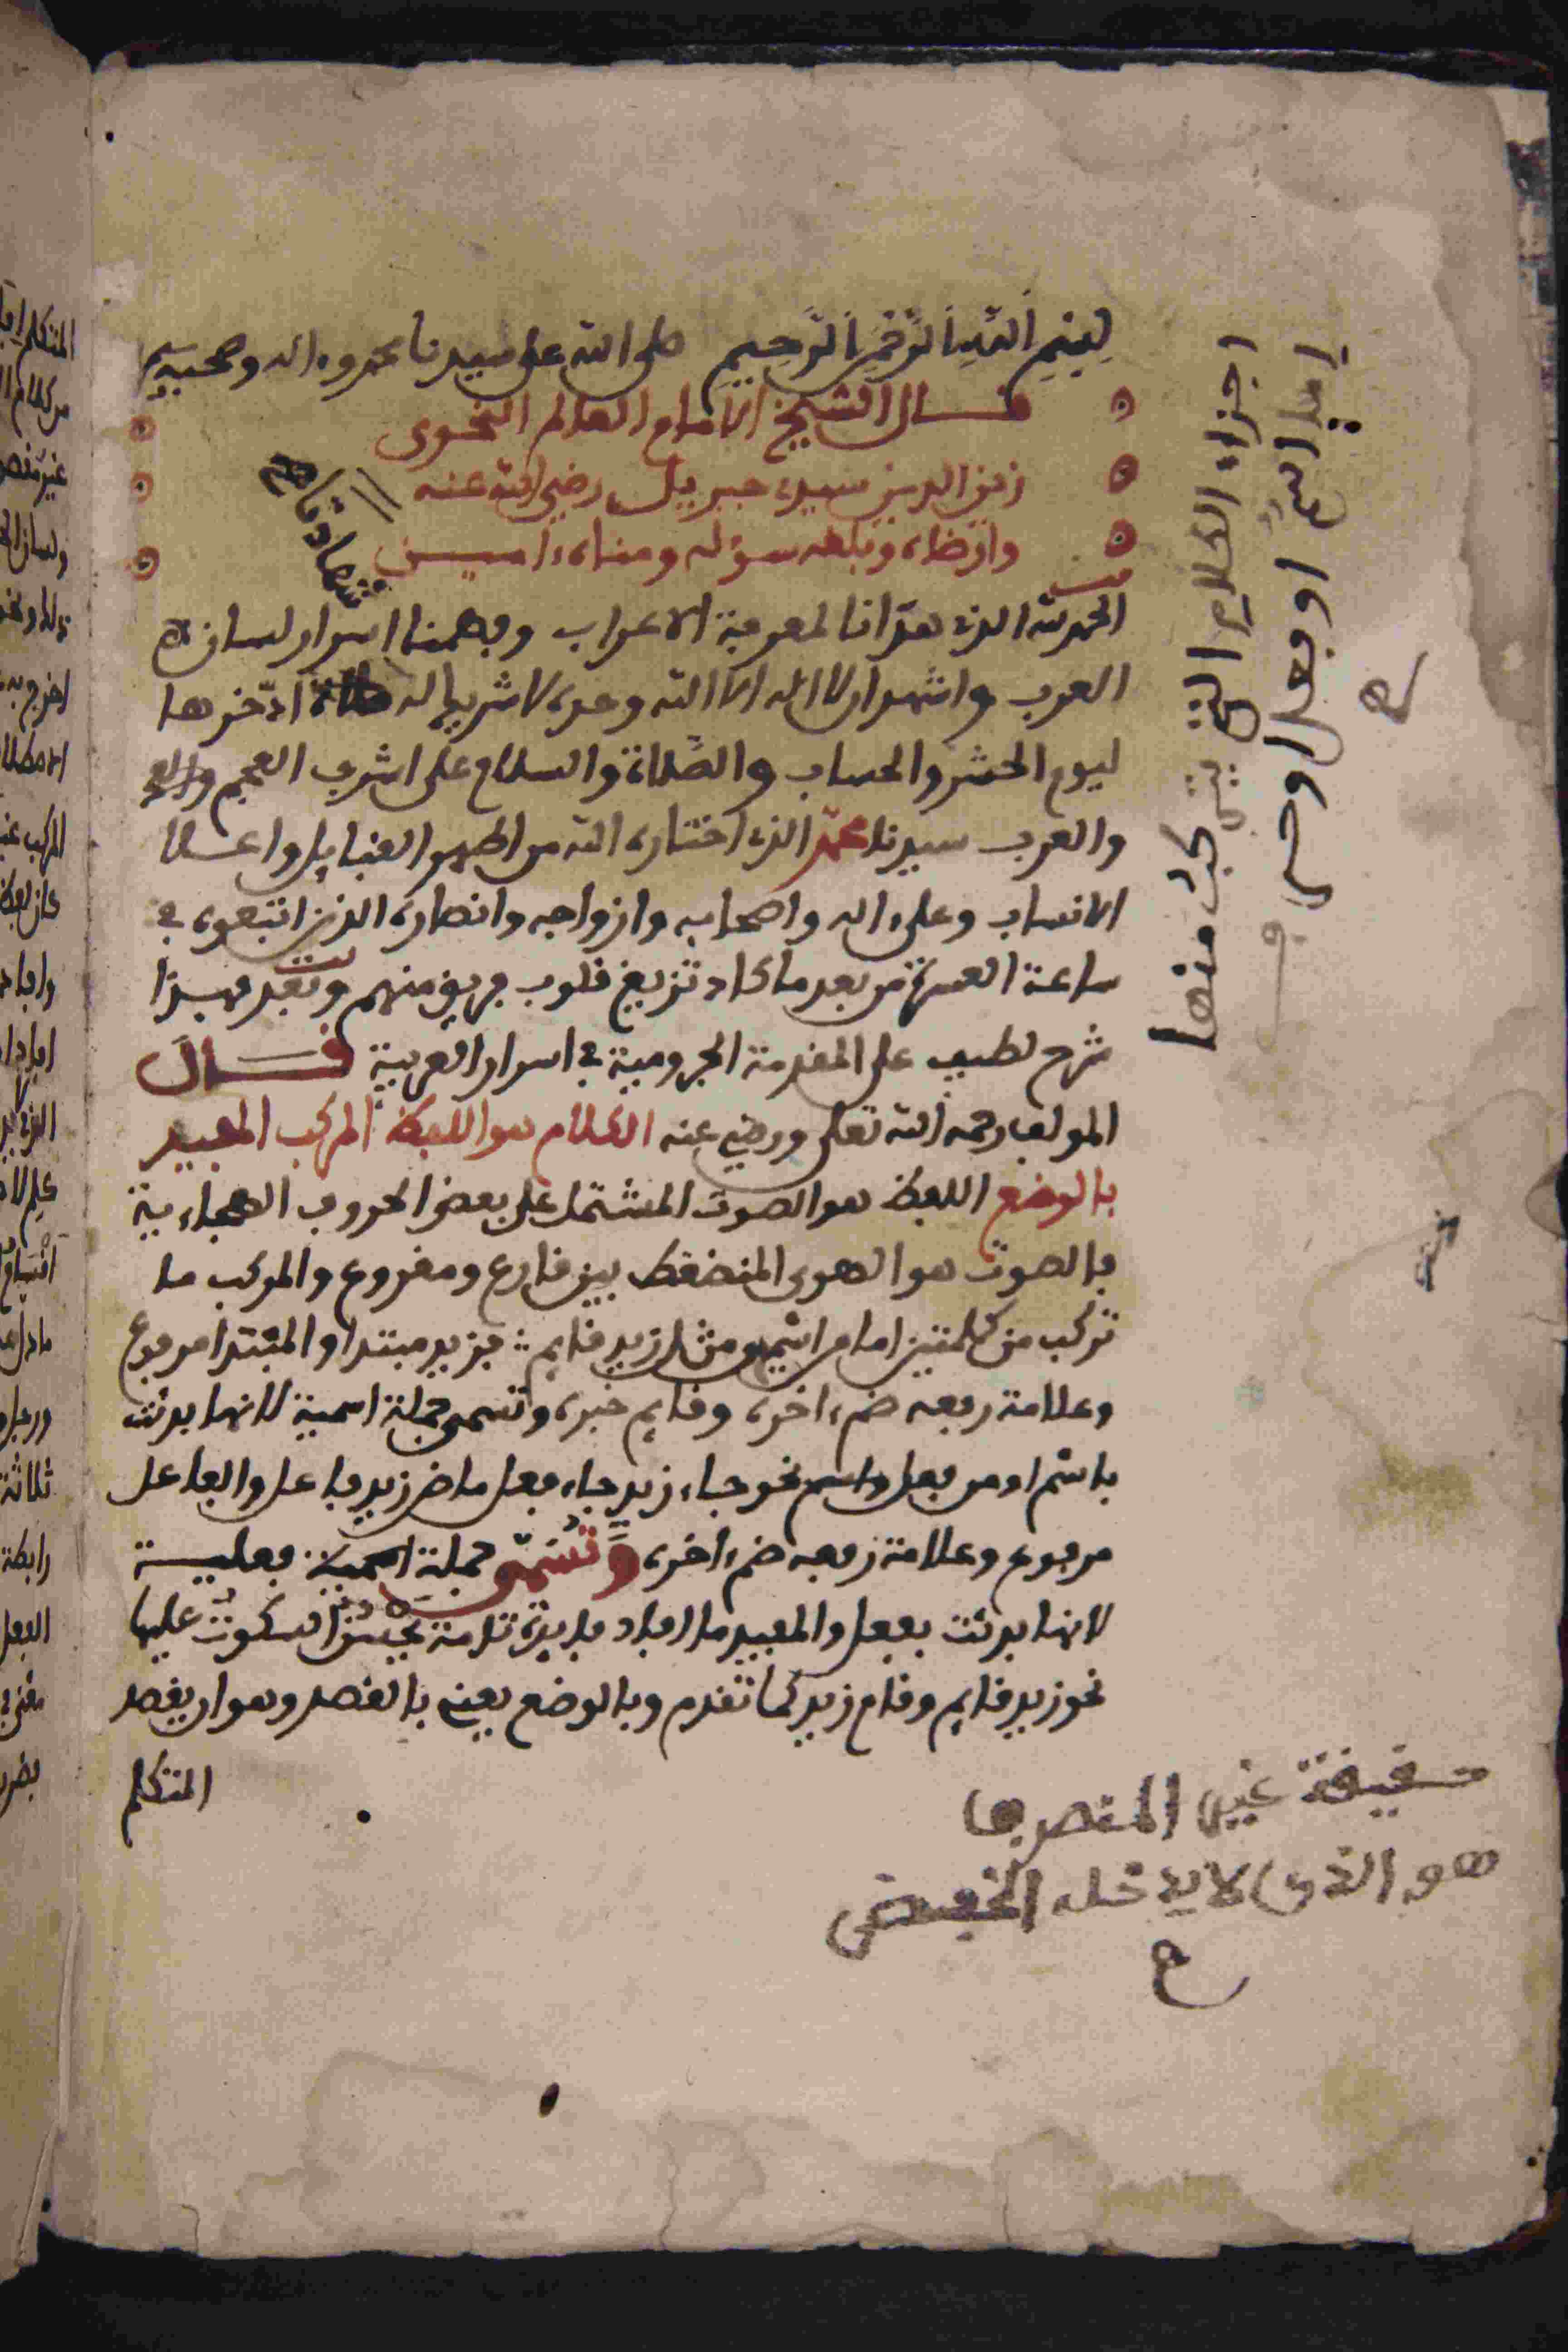 بسم الله الرحمن الرحيم صلى الله على سيدنا محمد وءاله وصحبه
قال الشيخ الامام العالم النحوى
زين الدين سيدي جبريل رضي الله عنه
وارضاه وبلغه سؤله ومناه ءامين
الحمد لله الذي هدانا لمعرفة الاعراب وفهمنا اسرار لسان
العرب واشهد ان لا اله الا الله وحده لا شريك له ادخرها
ليوم الحشر والحساب والصلاة والسلام على اشرف العجم
والعرب سيدنا محمد الذي اختاره الله من اطهر القبايل واعلا
الانساب وعلى ءاله واصحابه وازواجه وانصاره الذين اتبعوه في
ساعة العسرة من بعد ما كاد تزيغ قلوب فريق منهم وبعد فهذا
شرح لطيف على المقدمة الجرومية في اسرار العربية قال
المولف رحمه الله تعلى ورضي عنه الكلام هو اللفظ المركب المفيد
بالوضع اللفظ هو الصوت المشتمل على بعض الحروف الهجاءية
فالصوت هو الهوى المنضغط بين قارع ومقروع والمركب ما
تركب من كلمتين اما من اسمين مثل زيد قايم فزيد مبتدا والمبتدا مرفوع
وعلامة رفعه ضم ءاخره وقايم خبره وتسمى جملة اسمية لانها بدئت
باسم او من فعل واسم نحو جاء زيد جاء فعل ماض زيد فاعل والفاعل
مرفوع وعلامة رفعه ضم ءاخره وتسمى جملة اسمية فعلية
لانها بدئت بفعل والمفيد ما افاد فايدة تامة يحسن السكوت عليها
نحو زيد قايم وقام زيد كما تقدم وبالوضع يعني بالقصد وهو ان يقصد
المتكلم
اجزاء الكلام التي يتركب منها
اما اسم او فعل او حرف
حقيقة غير المنصرف
هو الذي لا يدخله الخفض